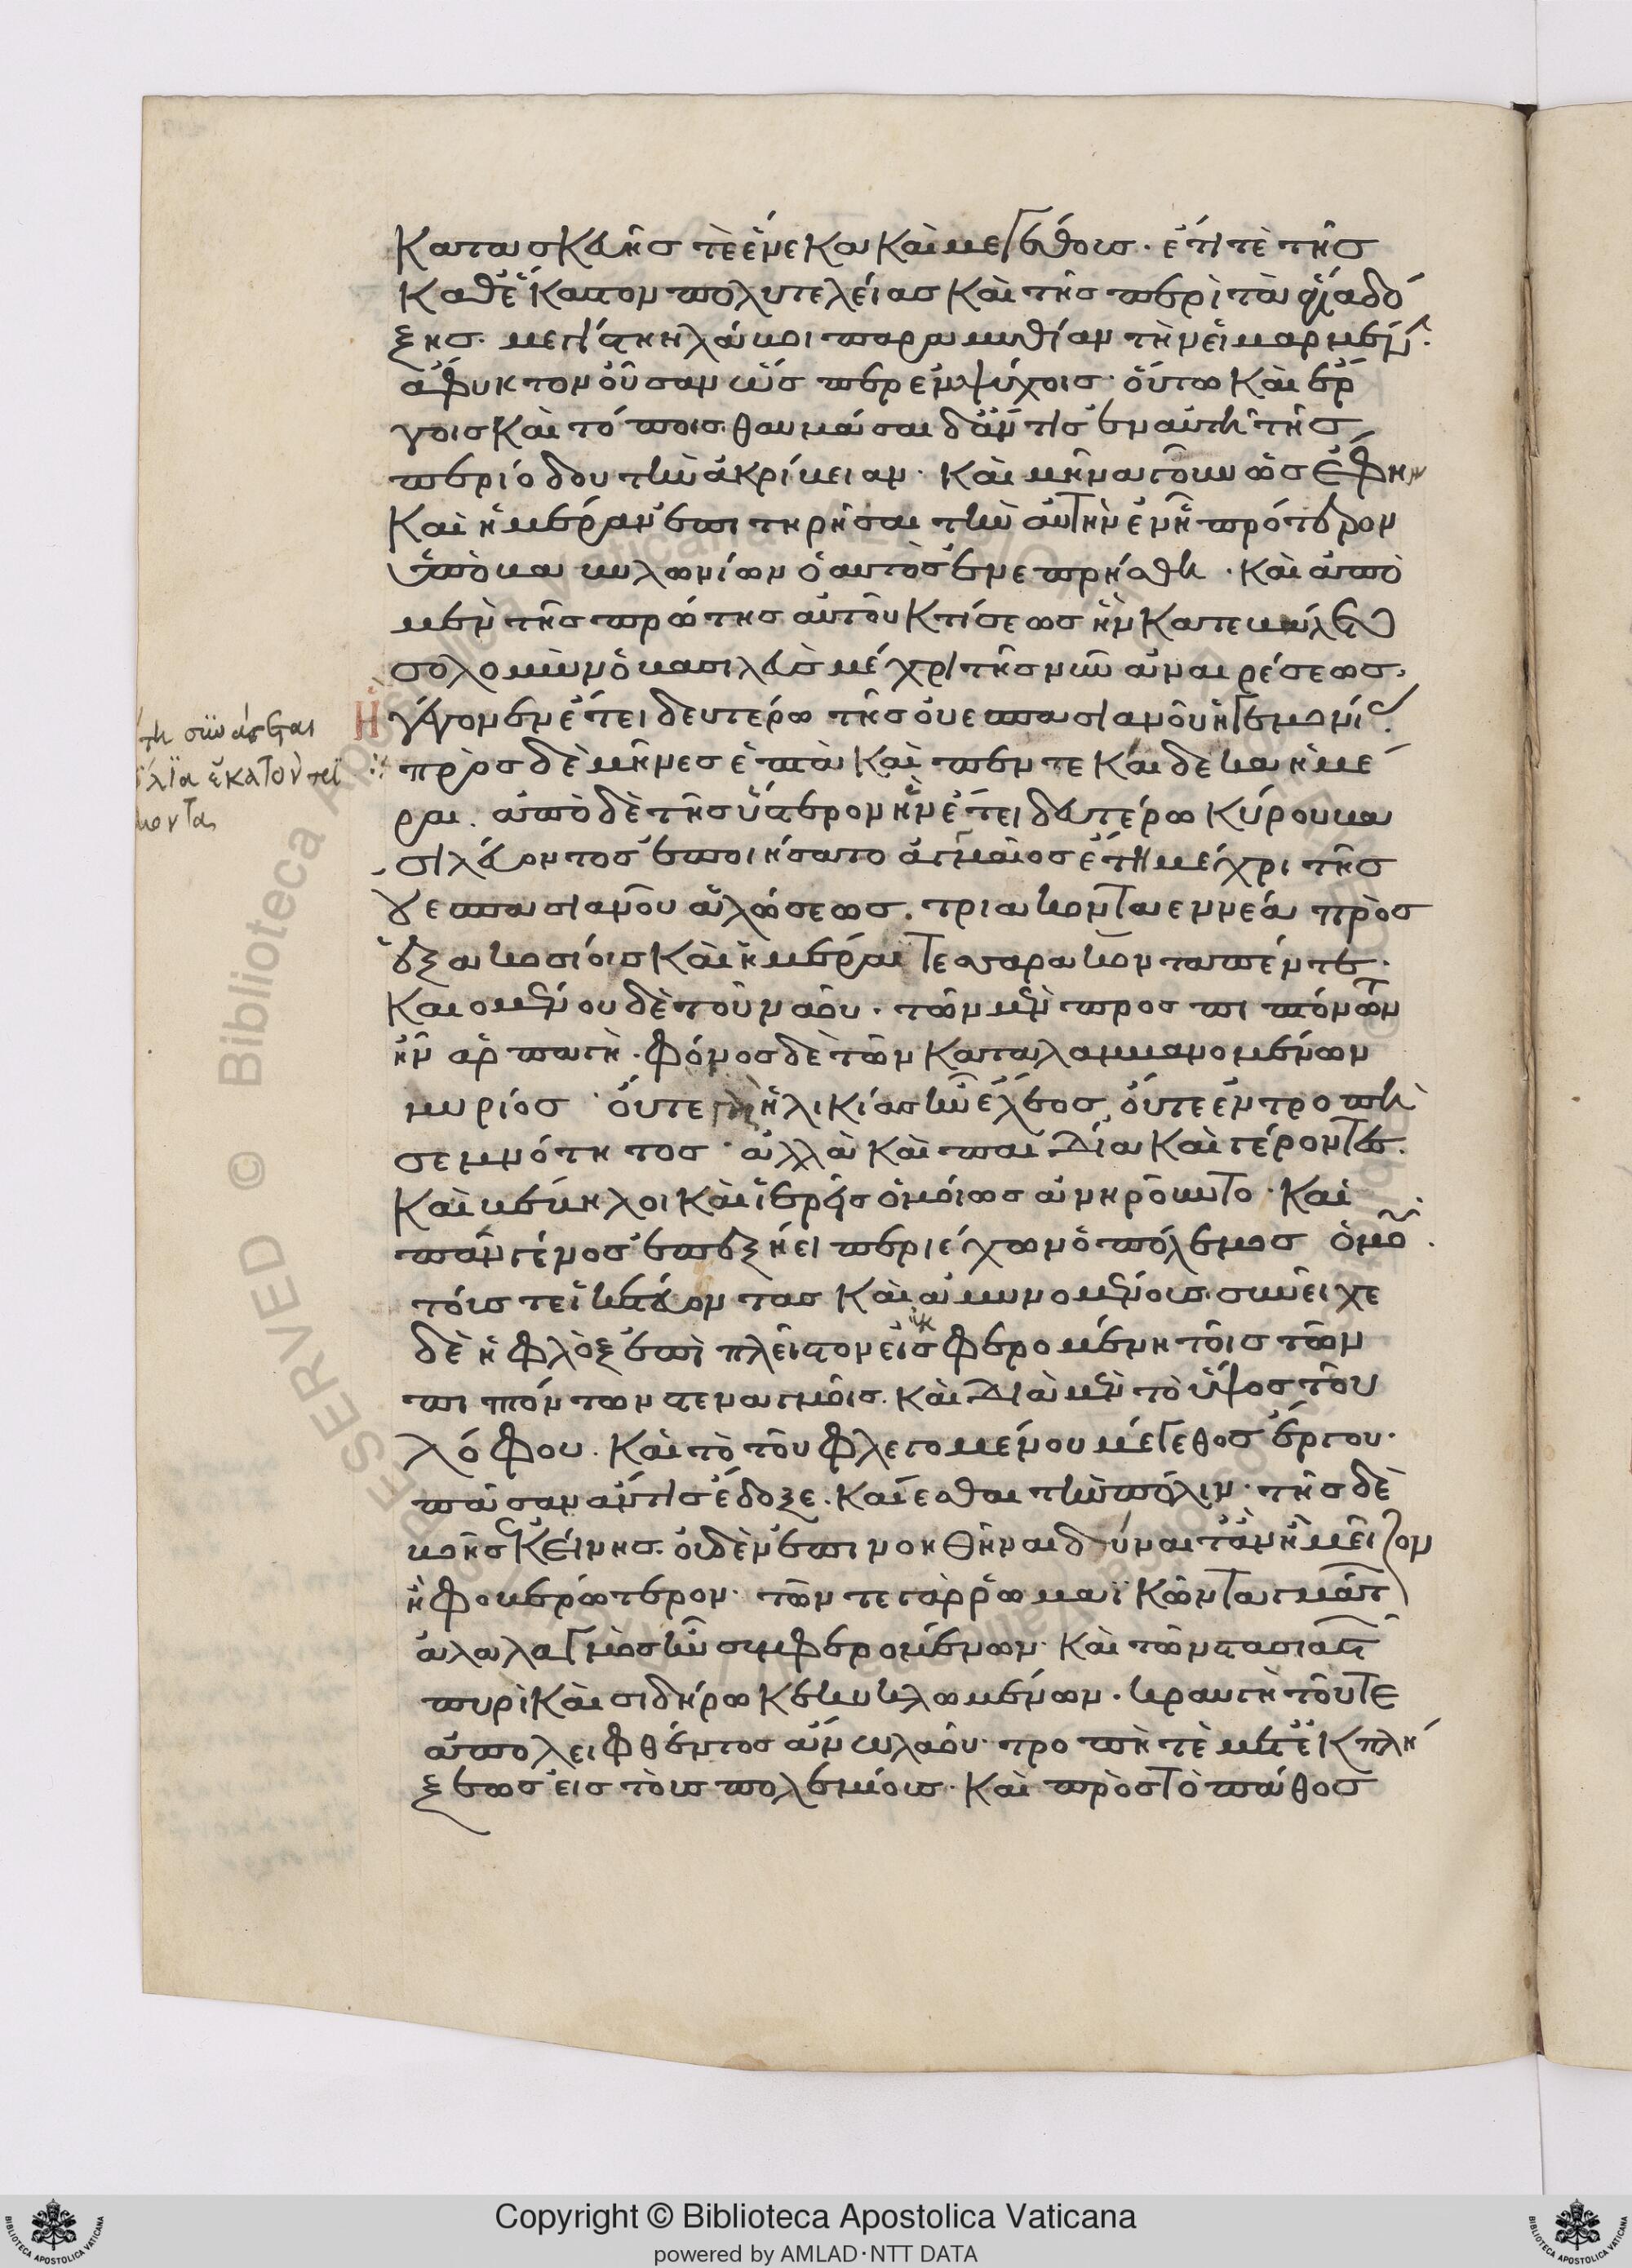 κατασκευῆς τὲ ἕνεκα καὶ μεγέθους· ἔτι τὲ τῆς
καθ' ἕκαστον πολυτελείας καὶ τῆς περὶ τὰ ἅγια δό
ξης. μεγίστην λάβοι παραμυθίαν τὴν εἱμαρμένην.
ἄφυκτον οὖσαν ὥσπερ ἐμψύχοις· οὕτω καὶ ἔρ
γοις καὶ τόποις. θαυμάσαι δ' ἄν τις ἐν αὐτῆ τῆς
περιόδου τὴν ἀκρίβειαν· καὶ μῆνα γοῦν ὡς ἔφην
καὶ ἡμέραν ἐπιτηρῆσαι τὴν αὐτὴν ἐν ἧ πρότερον
ὑπὸ βαβυλωνίων ὁ ναὸς ἐνεπρήσθη· καὶ ἀπὸ
μὲν τῆς πρώτης αὐτοῦ κτίσεως ἣν κατεβάλετο
σολομὼν ὁ βασιλεὺς μέχρι τῆς νῦν ἀναιρέσεως.
ἣ γέγονεν ἔτει δευτέρω τῆς οὐεσπασιανοῦ ἡγεμονίας.
πρὸς δὲ μῆνες ἑπτὰ καὶ πέντε καὶ δέκα ἡμέ
ραι. ἀπὸ δὲ τῆς ὕστερον ἣν ἔτει δευτέρω κύρου βα
σιλεύοντος ἐποιήσατο ἀγγαῖος ἔτη μέχρι τῆς
οὐεσπασιανοῦ ἁλώσεως. τριακονταεννέα πρὸς
ἑξακοσίοις καὶ ἡμέραι τεσσαρακονταπέντε.
καιομένου δὲ τοῦ ναοῦ· τῶν μὲν προσπιπτόντων
ἦν ἁρπαγὴ· φόνος δὲ τῶν καταλαμβανομένων
μυρίος· οὔτε ἡλικίας ἦν ἔλεος, οὔτε ἐντροπὴ
σεμνότητος· ἀλλὰ καὶ παιδία καὶ γέροντες.
καὶ βέβηλοι καὶ ἱερεῖς ὁμοίως ἀνηροῦντο· καὶ
πᾶν γένος ἐπεξήει περιέχων ὁ πόλεμος ὁμοῦ.
τούς τε ἱκετεύοντας καὶ ἀμυνομένους. συνεῖχε
δὲ ἡ φλὸξ ἐπὶ πλεῖστον εἰσφερομένη τοῖς τῶν
πιπτόντων στεναγμοῖς. καὶ διὰ μὲν τὸ ὕψος τοῦ
λόφου. καὶ τὸ τοῦ φλεγομένου μέγεθος ἔργου·
πᾶσαν ἄν τις ἔδοξε. καίεσθαι τὴν πόλιν· τῆς δὲ
βοῆς ἐκείνης. οὐδὲν ἐπινοηθῆναι δύναιτ' ἂν ἢ μεῖζον
ἢ φοβερώτερον· τῶν τε γὰρ ῥωμαϊκῶν ταγμάτων
ἀλαλαγμὸς ἦν συμφερομένων· καὶ τῶν στασιαστῶν
πυρὶ καὶ σιδήρω κεκυκλωμένων. κραυγὴ τοῦ τε
ἀπολειφθέντος ἄνω λαοῦ· τροπή τὲ μετ' ἐκπλή
ξεως εἰς τοὺς πολεμίους· καὶ πρὸς τὸ πάθος